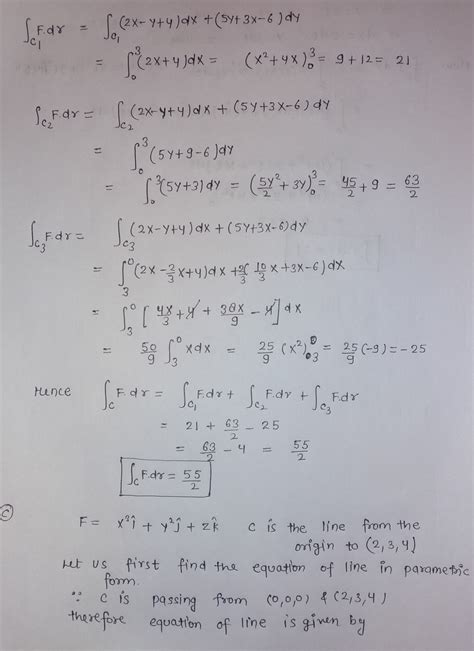 ∫_{C1} F.dr = ∫_{C1} (2x-y+4)dx +(5y+3x-6)dy
= ∫_0^3 (2x+4)dx = (x²+4x)_0^3 = 9+12 = 21
∫_{C2} F.dr = ∫_{C2} (2x-y+4)dx + (5y+3x-6)dy
= ∫_0^3 (5y+9-6)dy
= ∫_0^3 (5y+3)dy = (5y²/2 + 3y)_0^3 = 45/2 + 9 = 63/2
∫_{C3} F.dr = ∫_{C3} (2x-y+4)dx + (5y+3x-6)dy
= ∫_3^0 (2x - 2/3 x+4)dx + 2/3( 10/3 x +3x-6)dx
= ∫_3^0 [ 4x/3 + 4 + 38x/9 - 4 ] dx
= 50/9 ∫_3^0 xdx = 25/9 (x²)_3^0 = 25/9 (-9) = -25
Hence ∫_C F.dr = ∫_{C1} F.dr + ∫_{C2} F.dr + ∫_{C3} F.dr
= 21 + 63/2 - 25
= 63/2 - 4 = 55/2
∫_C F.dr = 55/2
(c)
F = x²î + y²ĵ + zk̂ C is the line from the
origin to (2,3,4)
Let us first find the equation of line in parametric
form.
∵ C is passing from (0,0,0) & (2,3,4)
therefore equation of line is given by